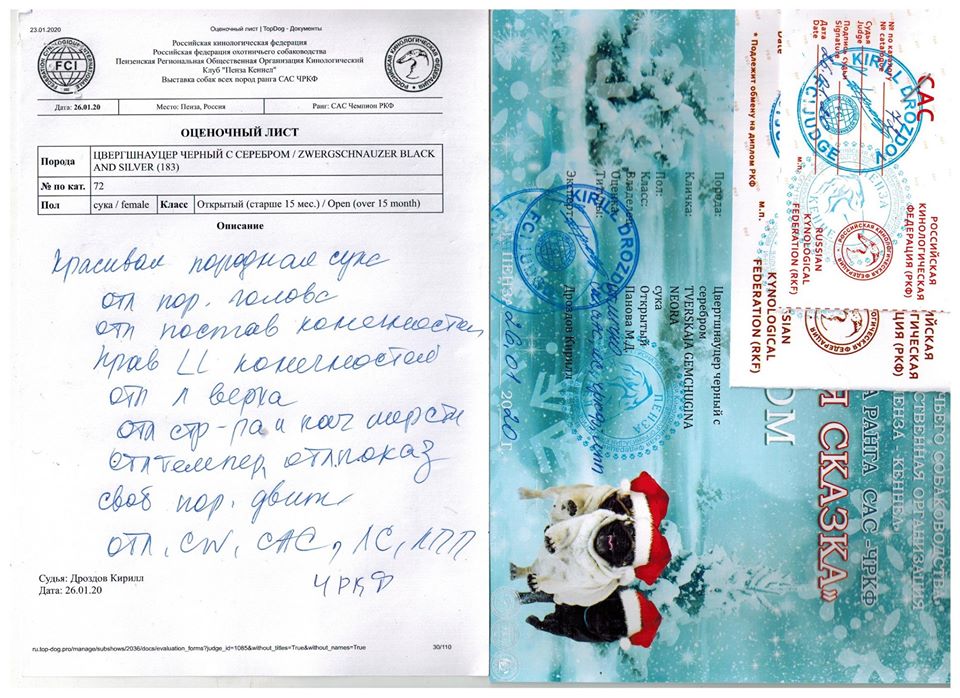 23.01.2020
Оценочный лист | TopDog - Документы
FCI
Российская кинологическая федерация
Российская федерация охотничьего собаководства
Пензенская Региональная Общественная Организация Кинологический
Клуб "Пенза Кеннел"
Выставка собак всех пород ранга САС ЧРКФ
Дата: 26.01.20
Место: Пенза, Россия
Ранг: САС Чемпион РКФ
ОЦЕНОЧНЫЙ ЛИСТ
Порода
ЦВЕРГШНАУЦЕР ЧЕРНЫЙ С СЕРЕБРОМ / ZWERGSCHNAUZER BLACK
AND SILVER (183)
№ по кат.
72
Пол
сука / female
Класс
Открытый (старше 15 мес.) / Open (over 15 month)
Описание
Красивая породная сука
отл пор. голова
отл постав конечностей
прав LL конечностей
отл л верха
отл стр-ра и кач шерсти
отл темпер, отл показ
своб пор. движ
отл, CW, CAC, ЛС, ЛПП
ЧРКФ
Судья: Дроздов Кирилл
Дата: 26.01.20
ru.top-dog.pro/manage/subshows/2036/docs/evaluation_forms?judge_id=1085&without_titles=True&without_names=True
30/110
САС
№ по каталогу
№ catalogue
Судья
Judge
Подпись судьи
Signature
Дата
Date
KIRILL DROZDOV
FCI JUDGE
м.п.
РОССИЙСКАЯ
КИНОЛОГИЧЕСКАЯ
ФЕДЕРАЦИЯ (РКФ)
RUSSIAN
KYNOLOGICAL
FEDERATION (RKF)
Date
* Подлежит обмену на диплом РКФ
м.п.
KYNOLOGICAL
FEDERATION (RKF)
СКАЗКА»
РАНГА САС -ЧРКФ
Порода:
Цвергшнауцер черный с
серебром
Кличка:
TVERSKAJA GEMCHUGINA
NEORA
Пол:
сука
Класс:
Открытый
Владелец:
Панова М.Д.
Оценка:
Титулы:
Эксперт:
Дроздов Кирилл
KIRILL DROZDOV
ПЕНЗА
26.01.2020 г